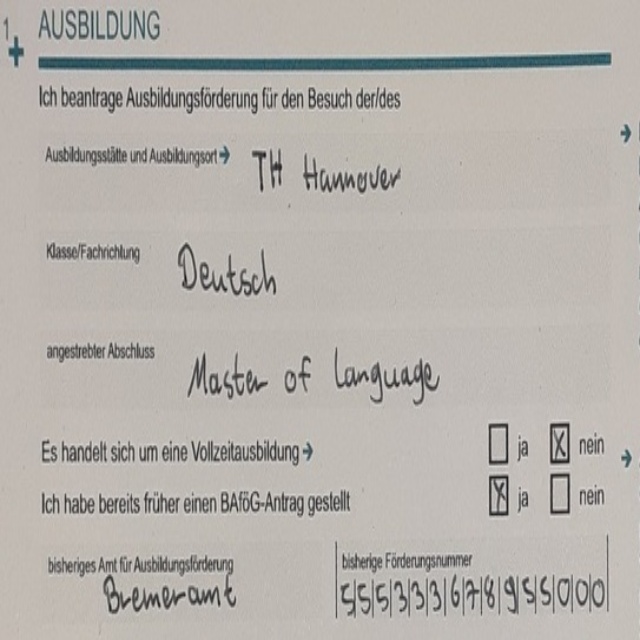 1 AUSBILDUNG
Ich beantrage Ausbildungsförderung für den Besuch der/des
Ausbildungsstätte und Ausbildungsort → TH Hannover
Klasse/Fachrichtung Deutsch
angestrebter Abschluss Master of Language
Es handelt sich um eine Vollzeitausbildung → ja X nein
Ich habe bereits früher einen BAföG-Antrag gestellt X ja nein
bisheriges Amt für Ausbildungsförderung bisherige Förderungsnummer
Bremeramt 5|5|5|3|3|3|6|7|8|9|5|5|0|0|0